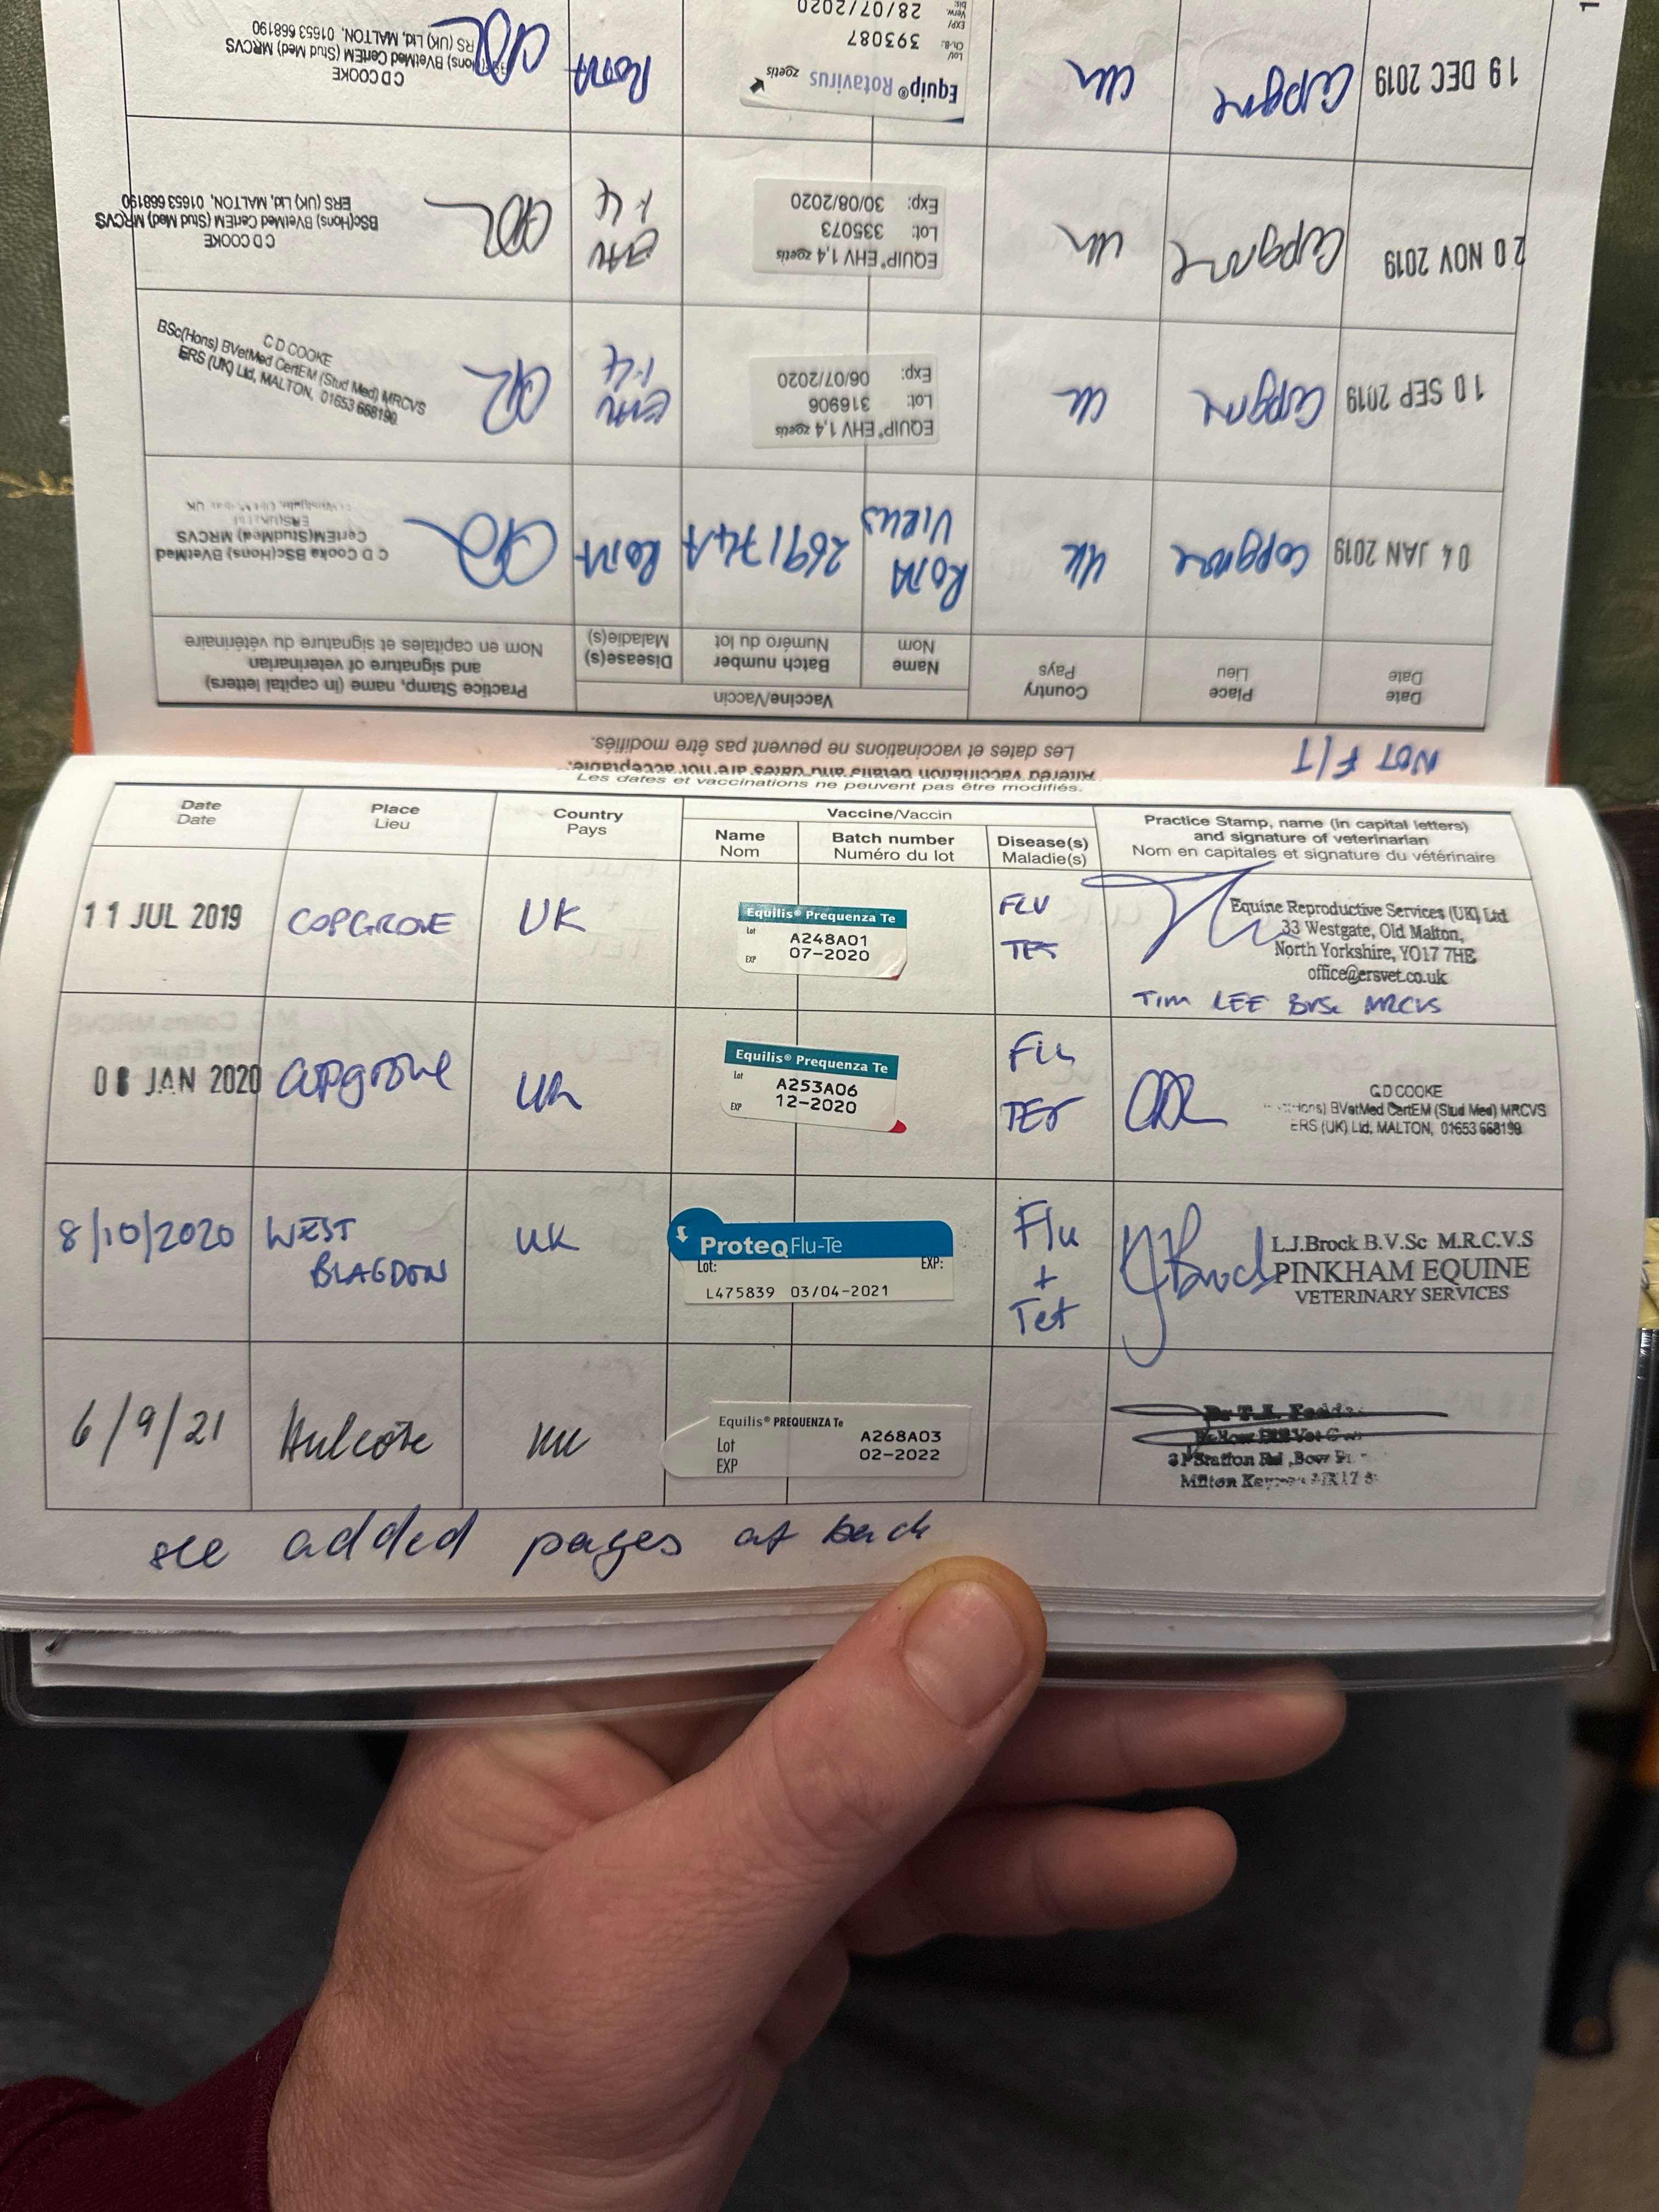 Les dates et vaccinations ne peuvent pas être modifiés.
Date Place Country Vaccine/Vaccin Practice Stamp, name (in capital letters)
Date Lieu Pays Name Batch number Disease(s) and signature of veterinarian
Nom Numéro du lot Maladie(s) Nom en capitales et signature du vétérinaire
11 JUL 2019 COPGROVE UK
Equilis® Prequenza Te
Lot A248A01
EXP 07-2020
FLU
TET
Equine Reproductive Services (UK) Ltd
33 Westgate, Old Malton,
North Yorkshire, YO17 7HE
office@ersvet.co.uk
TIM LEE BVSc MRCVS
08 JAN 2020 Copgrove UK
Equilis® Prequenza Te
Lot A253A06
EXP 12-2020
FLU
TET
C D COOKE
BVetMed CertEM (Stud Med) MRCVS
ERS (UK) Ltd, MALTON, 01653 668199
8/10/2020 WEST BLAGDON UK
ProteqFlu-Te
Lot: EXP:
L475839 03/04-2021
Flu
+
Tet
L.J.Brock B.V.Sc M.R.C.V.S
PINKHAM EQUINE
VETERINARY SERVICES
6/9/21 Hulcote UK
Equilis® PREQUENZA Te
Lot A268A03
EXP 02-2022
Milton
see added pages at back
NOT F/T
Altered vaccination details and dates are not acceptable.
Les dates et vaccinations ne peuvent pas être modifiés.
Date Place Country Vaccine/Vaccin Practice Stamp, name (in capital letters)
Date Lieu Pays Name Batch number Disease(s) and signature of veterinarian
Nom Numéro du lot Maladie(s) Nom en capitales et signature du vétérinaire
04 JAN 2019 Copgrove UK ROTA VIRUS 269174A ROTA
C D Cooke BSc(Hons) BVetMed
CertEM(StudMed) MRCVS
10 SEP 2019 Copgrove UK
EQUIP® EHV 1,4 zoetis
Lot: 316906
Exp: 06/07/2020
EHV
1.4
C D COOKE
BSc(Hons) BVetMed CertEM (Stud Med) MRCVS
ERS (UK) Ltd, MALTON, 01653 668190
20 NOV 2019 Copgrove UK
EQUIP® EHV 1,4 zoetis
Lot: 335073
Exp: 30/08/2020
EHV
1.4
C D COOKE
BSc(Hons) BVetMed CertEM (Stud Med) MRCVS
ERS (UK) Ltd, MALTON, 01653 668190
19 DEC 2019 Copgrove UK
Equip® Rotavirus zoetis
Lot/ Ch.-B.: 393087
EXP/ Verw. bis: 28/07/2020
ROTA
C D COOKE
BVetMed CertEM (Stud Med) MRCVS
(UK) Ltd, MALTON, 01653 668190